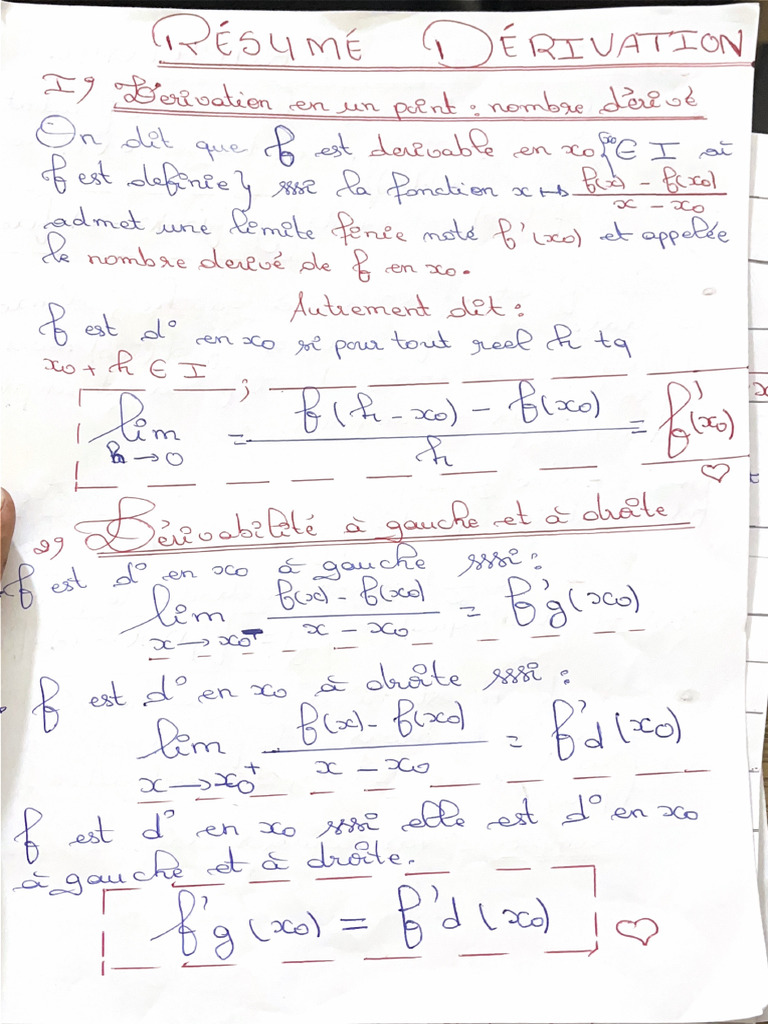 RÉSUMÉ DÉRIVATION
I) Dérivation en un point : nombre dérivé
On dit que f est derivable en x₀ {x₀ ∈ I où
f est definie} sssi la fonction x ↦ (f(x) - f(x₀))/(x - x₀)
admet une limite finie noté f'(x₀) et appelée
le nombre derivé de f en x₀.
Autrement dit :
f est d° en x₀ si pour tout reel h tq
x₀ + h ∈ I ;
lim h→0 = (f(h - x₀) - f(x₀))/h = f'(x₀)
2) Dérivabilité à gauche et à droite
f est d° en x₀ à gauche sssi :
lim x→x₀⁻ (f(x) - f(x₀))/(x - x₀) = f'g(x₀)
f est d° en x₀ à droite sssi :
lim x→x₀⁺ (f(x) - f(x₀))/(x - x₀) = f'd(x₀)
f est d° en x₀ sssi elle est d° en x₀
à gauche et à droite.
f'g(x₀) = f'd(x₀)